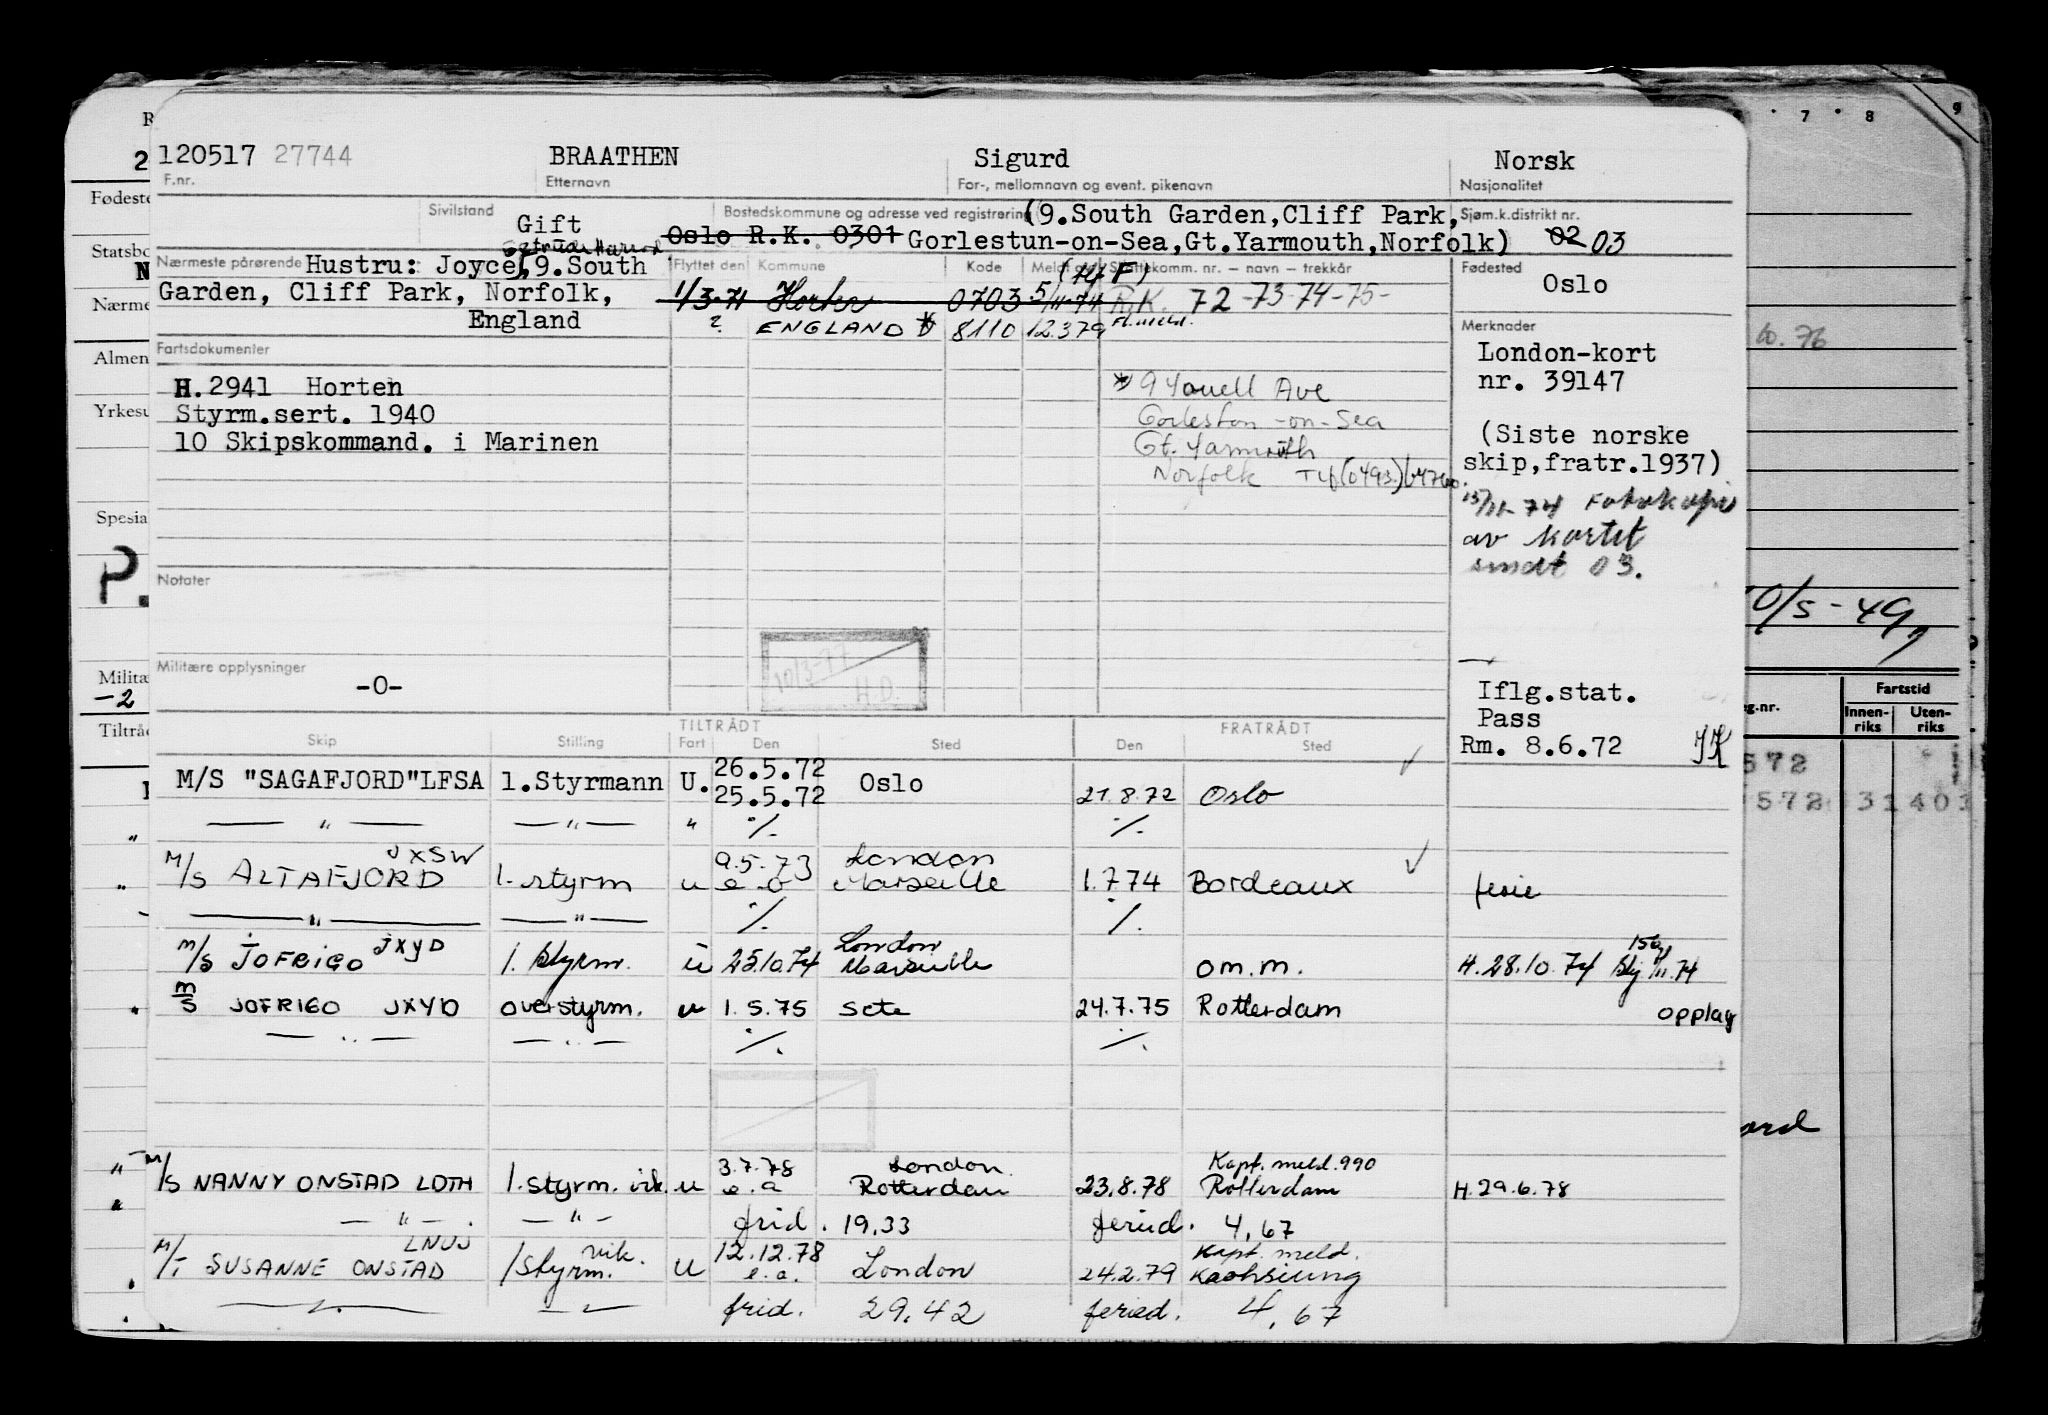 120517 27744 BRAATHEN Sigurd Norsk
F.nr. Etternavn For-, mellomnavn og event. pikenavn Nasjonalitet
Sivilstand Gift Bostedskommune og adresse ved registrering (9.South Garden,Cliff Park, Sjøm.k.distrikt nr.
Oslo R.K. 0301 Gorlestun-on-Sea,Gt.Yarmouth,Norfolk) 02 03
Nærmeste pårørende Hustru: Joyce, 9.South Flyttet den Kommune Kode Fødested
Garden, Cliff Park, Norfolk, 1/3-71 Horten 0703 5/11-74 R.K. 72-73-74-75- Oslo
England ? ENGLAND * 8110 12.3.79 Fl.meld. Merknader
Fartsdokumenter London-kort
H.2941 Horten * 9 Youell Ave nr. 39147
Styrm.sert. 1940 Gorleston-on-Sea (Siste norske
10 Skipskommand. i Marinen Gt. Yarmouth skip,fratr.1937)
Norfolk Tlf (0493)
15/11-74 Fotokopi
av kortet
sendt 03.
Notater
10/3-77 H.D.
Militære opplysninger
-0-
Iflg.stat.
Pass
Rm. 8.6.72
TILTRÅDT FRATRÅDT
Skip Stilling Fart Den Sted Den Sted
M/S "SAGAFJORD"LFSA 1.Styrmann U. 26.5.72 25.5.72 Oslo 21.8.72 Oslo
— " — — " — " %. %.
M/S ALTAFJORD JXSW 1. styrm u 9.5.73 e.a London Marseille 1.7.74 Bordeaux ferie
— " — — " — %. %.
M/S JOFRIGO JXYD 1. Styrm. u 25.10.74 London Marseille om.m. H.28.10.74
M/S JOFRIGO JXYD overstyrm. u 1.5.75 Sete 24.7.75 Rotterdam opplag
— " — — " — %. %.
M/S NANNY ONSTAD LOTH 1.styrm. vik. u 3.7.78 e.a London Rotterdam 23.8.78 Kapt. meld. 990 Rotterdam H.29.6.78
— " — — " — frid. 19,33 feried. 4,67
M/T SUSANNE ONSTAD LNUJ 1styrm. vik. u 12.12.78 e.a. London 24.2.79 Kapt. meld. Kaohsiung
— " — — " — frid. 29,42 feried. 4,67
7 8 9
10/5-49
Fartstid
Innen-riks Uten-riks
572
572 31401